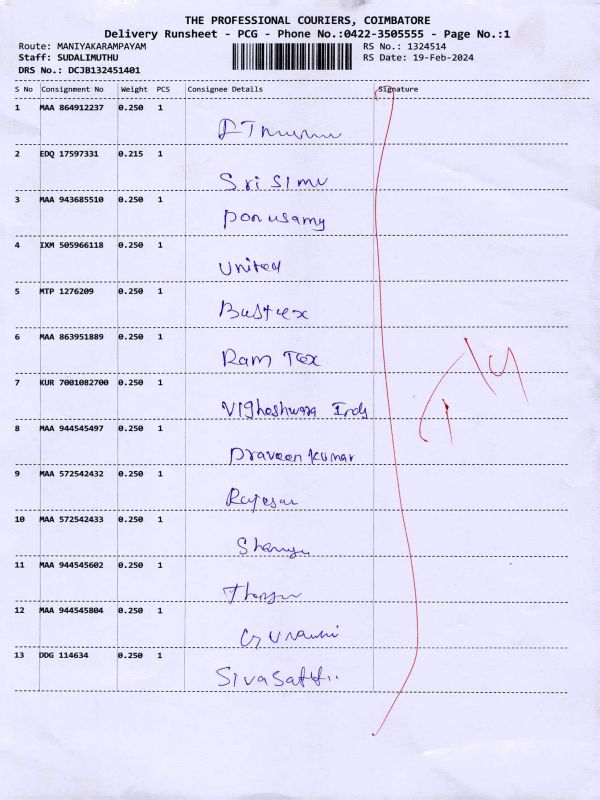 THE PROFESSIONAL COURIERS, COIMBATORE
Delivery Runsheet - PCG - Phone No.:0422-3505555 - Page No.:1
Route: MANIYAKARAMPAYAM RS No.: 1324514
Staff: SUDALIMUTHU RS Date: 19-Feb-2024
DRS No.: DCJB132451401
S No Consignment No Weight PCS Consignee Details Signature
1 MAA 864912237 0.250 1
2 EDQ 17597331 0.215 1
Sri Simu
3 MAA 943685510 0.250 1
Ponusamy
4 IXM 505966118 0.250 1
United
5 MTP 1276209 0.250 1
Bustex
6 MAA 863951889 0.250 1
Ram Tex
7 KUR 7001082700 0.250 1
Vigheshwara Inds
8 MAA 944545497 0.250 1
Praveen Kumar
9 MAA 572542432 0.250 1
10 MAA 572542433 0.250 1
11 MAA 944545602 0.250 1
12 MAA 944545804 0.250 1
13 DDG 114634 0.250 1